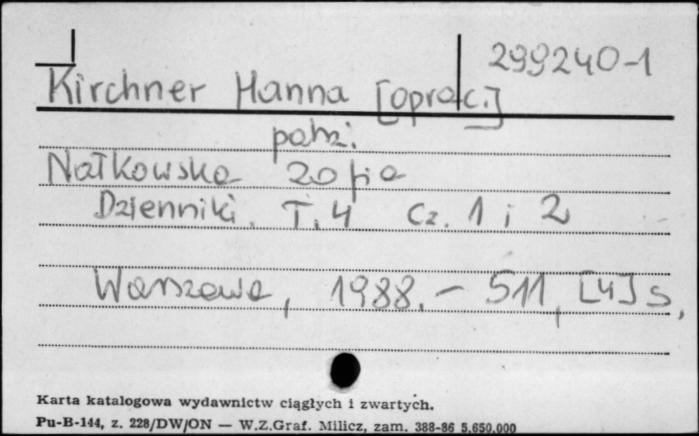 299240-1
Kirchner Hanna [oprac.]
patrz:
Nałkowska Zofia
Dzienniki. T. 4 Cz. 1 i 2
Warszawa, 1988. - 511, [4] s.
Karta katalogowa wydawnictw ciągłych i zwartych.
Pu-B-144, z. 228/DW/ON — W.Z.Graf. Milicz, zam. 388-86 5.650.000